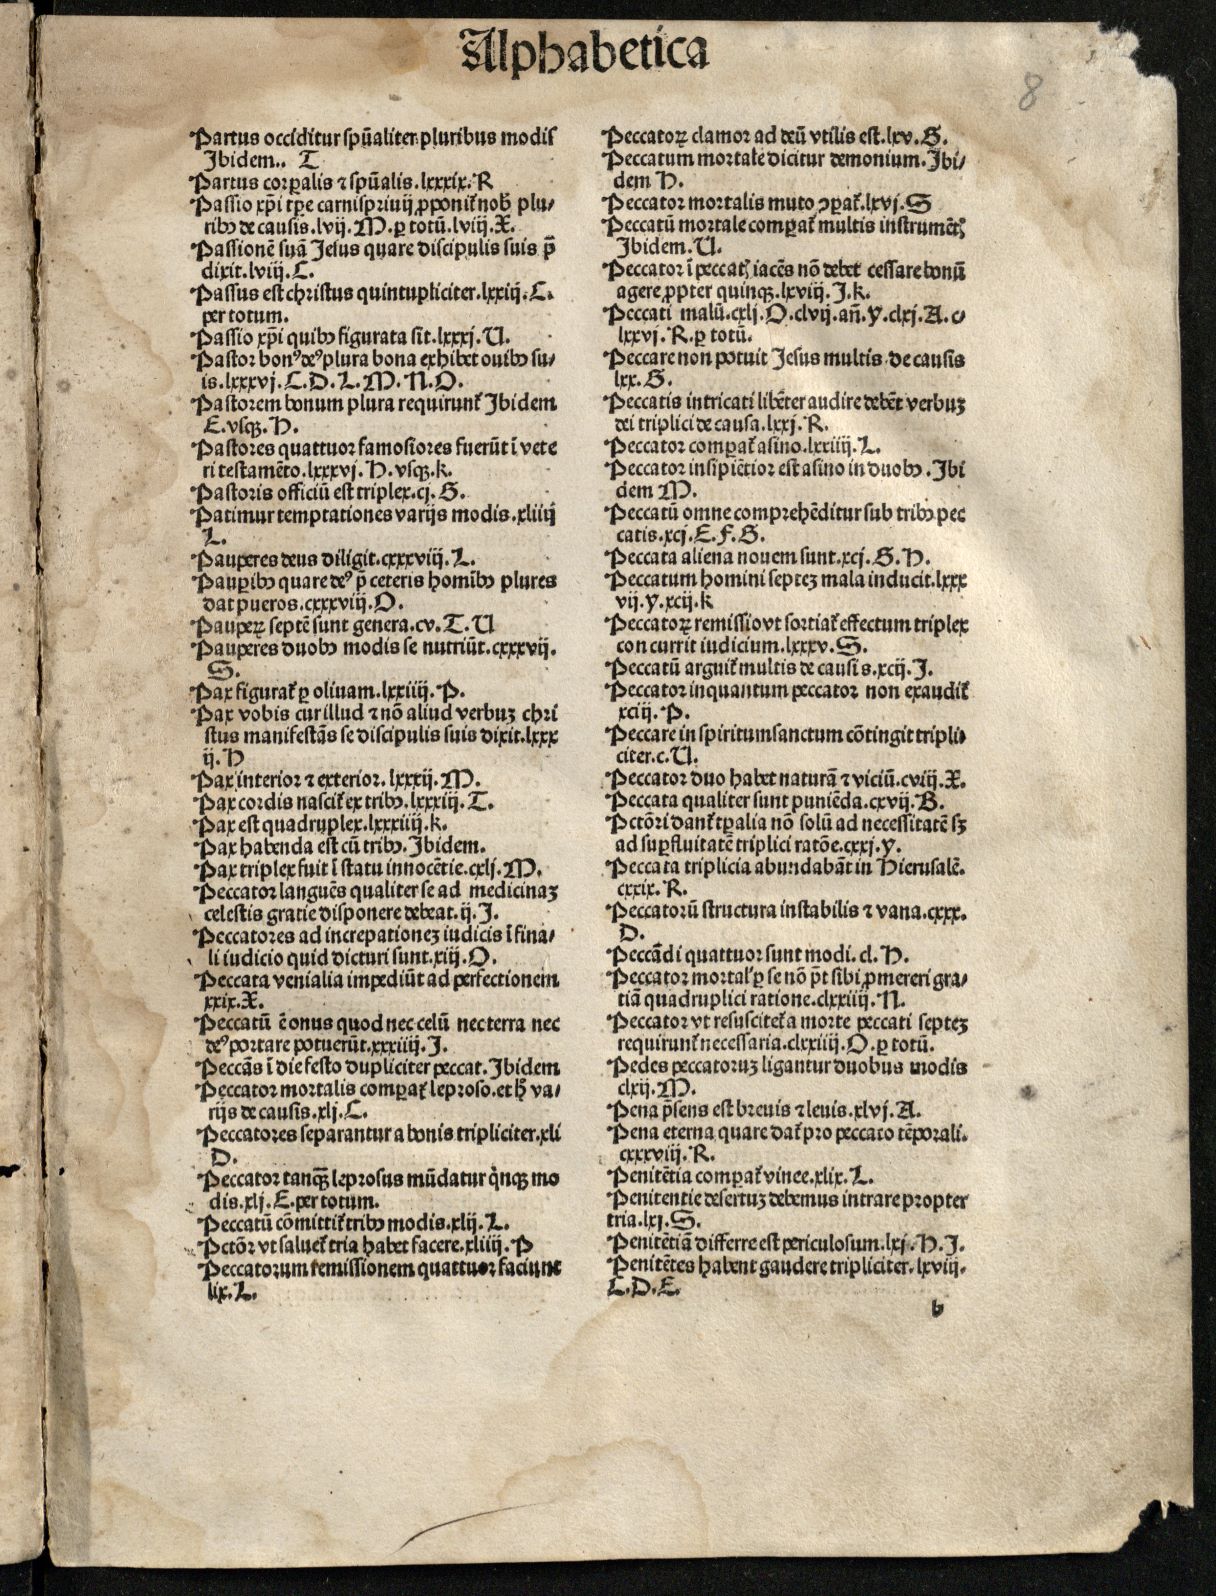 Alphabetica
8
Partus occiditur spūaliter pluribus modis
Ibidem.. T
Partus corꝑalis ⁊ spūalis.lxxxix.R
Passio xp̄i tꝑe carnispriuij ꝓponit᷑ nob̄ plu/
ribꝫ de causis.lvij.M.ꝑ totū.lviij.X.
Passionē suā Jesus quare discipulis suis p̄
dixit.lviij.C.
Passus est christus quintupliciter.lxxiij.C.
per totum.
Passio xp̄i quibꝫ figurata sit.lxxxj.U.
Pastor bonꝰ deꝰ plura bona exhibet ouibꝫ su/
is.lxxxvj.C.D.L.M.N.O.
Pastorem bonum plura requirunt᷑ Ibidem
E.vsqꝫ.H.
Pastores quattuor famosiores fuerūt ī vete
ri testamēto.lxxxvj.H.vsqꝫ.k.
Pastoris officiū est triplex.cj.G.
Patimur temptationes varijs modis.xliiij
L.
Pauperes deus diligit.cxxxviij.L.
Pauꝑibꝫ quare deꝰ p̄ ceteris homībꝫ plures
dat pueros.cxxxviij.O.
Pauperꝝ septē sunt genera.cv.T.U
Pauperes duobꝫ modis se nutriūt.cxxxvij.
S.
Pax figurat᷑ ꝑ oliuam.lxxiiij.P.
Pax vobis cur illud ⁊ nō aliud verbuꝫ chri
stus manifestās se discipulis suis dixit.lxxx
ij.H
Pax interior ⁊ exterior.lxxxij.M.
Pax cordis nascit᷑ ex tribꝫ.lxxxiij.T.
Pax est quadruplex.lxxxiiij.k.
Pax habenda est cū tribꝫ.Ibidem.
Pax triplex fuit ī statu innocētie.cxlj.M.
Peccator languēs qualiter se ad medicinaꝫ
celestis gratie disponere debeat.ij.I.
Peccatores ad increpationeꝫ iudicis ī fina/
li iudicio quid dicturi sunt.xiij.O.
Peccata venialia impediūt ad perfectionem
xxix.X.
Peccatū ē onus quod nec celū nec terra nec
deꝰ portare potuerūt.xxxiiij.I.
Peccās ī die festo dupliciter peccat.Ibidem
Peccator mortalis comꝑat᷑ leproso.et h̄ va/
rijs de causis.xlj.C.
Peccatores separantur a bonis tripliciter.xli
D.
Peccator tanqꝫ leprosus mūdatur qͥnqꝫ mo
dis.xlj.E.per totum.
Peccatū cōmittit᷑ tribꝫ modis.xlij.L.
Pctōr vt saluet᷑ tria habet facere.xliiij.P
Peccatorum remissionem quattuor faciunt
lix.L.
Peccatorꝝ clamor ad deū vtilis est.lxv.G.
Peccatum mortale dicitur demonium.Ibi/
dem H.
Peccator mortalis muto ꝯꝑat᷑.lxvj.S
Peccatū mortale comꝑat᷑ multis instrumētꝭ
Ibidem.U.
Peccator ī peccatꝭ iacēs nō debet cessare bonū
agere ꝓpter quinqꝫ.lxviij.I.k.
Peccati malū.cxlj.O.clvij.añ.y.clxj.A.c/
lxxvj.R.ꝑ totū.
Peccare non potuit Jesus multis de causis
lxx.G.
Peccatis intricati libēter audire debēt verbuꝫ
dei triplici de causa.lxxj.R.
Peccator comꝑat᷑ asino.lxxiiij.L.
Peccator insipiētior est asino in duobꝫ.Ibi
dem M.
Peccatū omne comprehēditur sub tribꝫ pec
catis.xcj.E.F.G.
Peccata aliena nouem sunt.xcj.G.H.
Peccatum homini septeꝫ mala inducit.lxxx
vij.y.xcij.k
Peccatorꝝ remissio vt sortiat᷑ effectum triplex
con currit iudicium.lxxxv.S.
Peccatū arguit᷑ multis de causis.xcij.I.
Peccator inquantum peccator non exaudit᷑
xciij.P.
Peccare in spiritumsanctum cōtingit tripli/
citer.c.U.
Peccator duo habet naturā ⁊ viciū.cviij.X.
Peccata qualiter sunt puniēda.cxvij.B.
Pctōri dant᷑ tꝑalia nō solū ad necessitatē sꝫ
ad suꝑfluitatē triplici ratōe.cxxj.y.
Peccata triplicia abundabāt in Hierusalē.
cxxix.R.
Peccatorū structura instabilis ⁊ vana.cxxx.
D.
Peccādi quattuor sunt modi.cl.H.
Peccator mortal' ꝑ se nō p̄t sibi ꝓmereri gra/
tiā quadruplici ratione.clxxiiij.N.
Peccator vt resuscitet᷑ a morte peccati septeꝫ
requirunt᷑ necessaria.clxxiiij.O.ꝑ totū.
Pedes peccatoruꝫ ligantur duobus modis
clxij.M.
Pena p̄sens est breuis ⁊ leuis.xlvj.A.
Pena eterna quare dat᷑ pro peccato tēporali.
cxxxviij.R.
Penitētia comꝑat᷑ vinee.xlix.L.
Penitentie desertuꝫ debemus intrare propter
tria.lxj.S.
Penitētiā differre est periculosum.lxj.H.I.
Penitētes habent gaudere tripliciter.lxviij.
C.D.E.
b